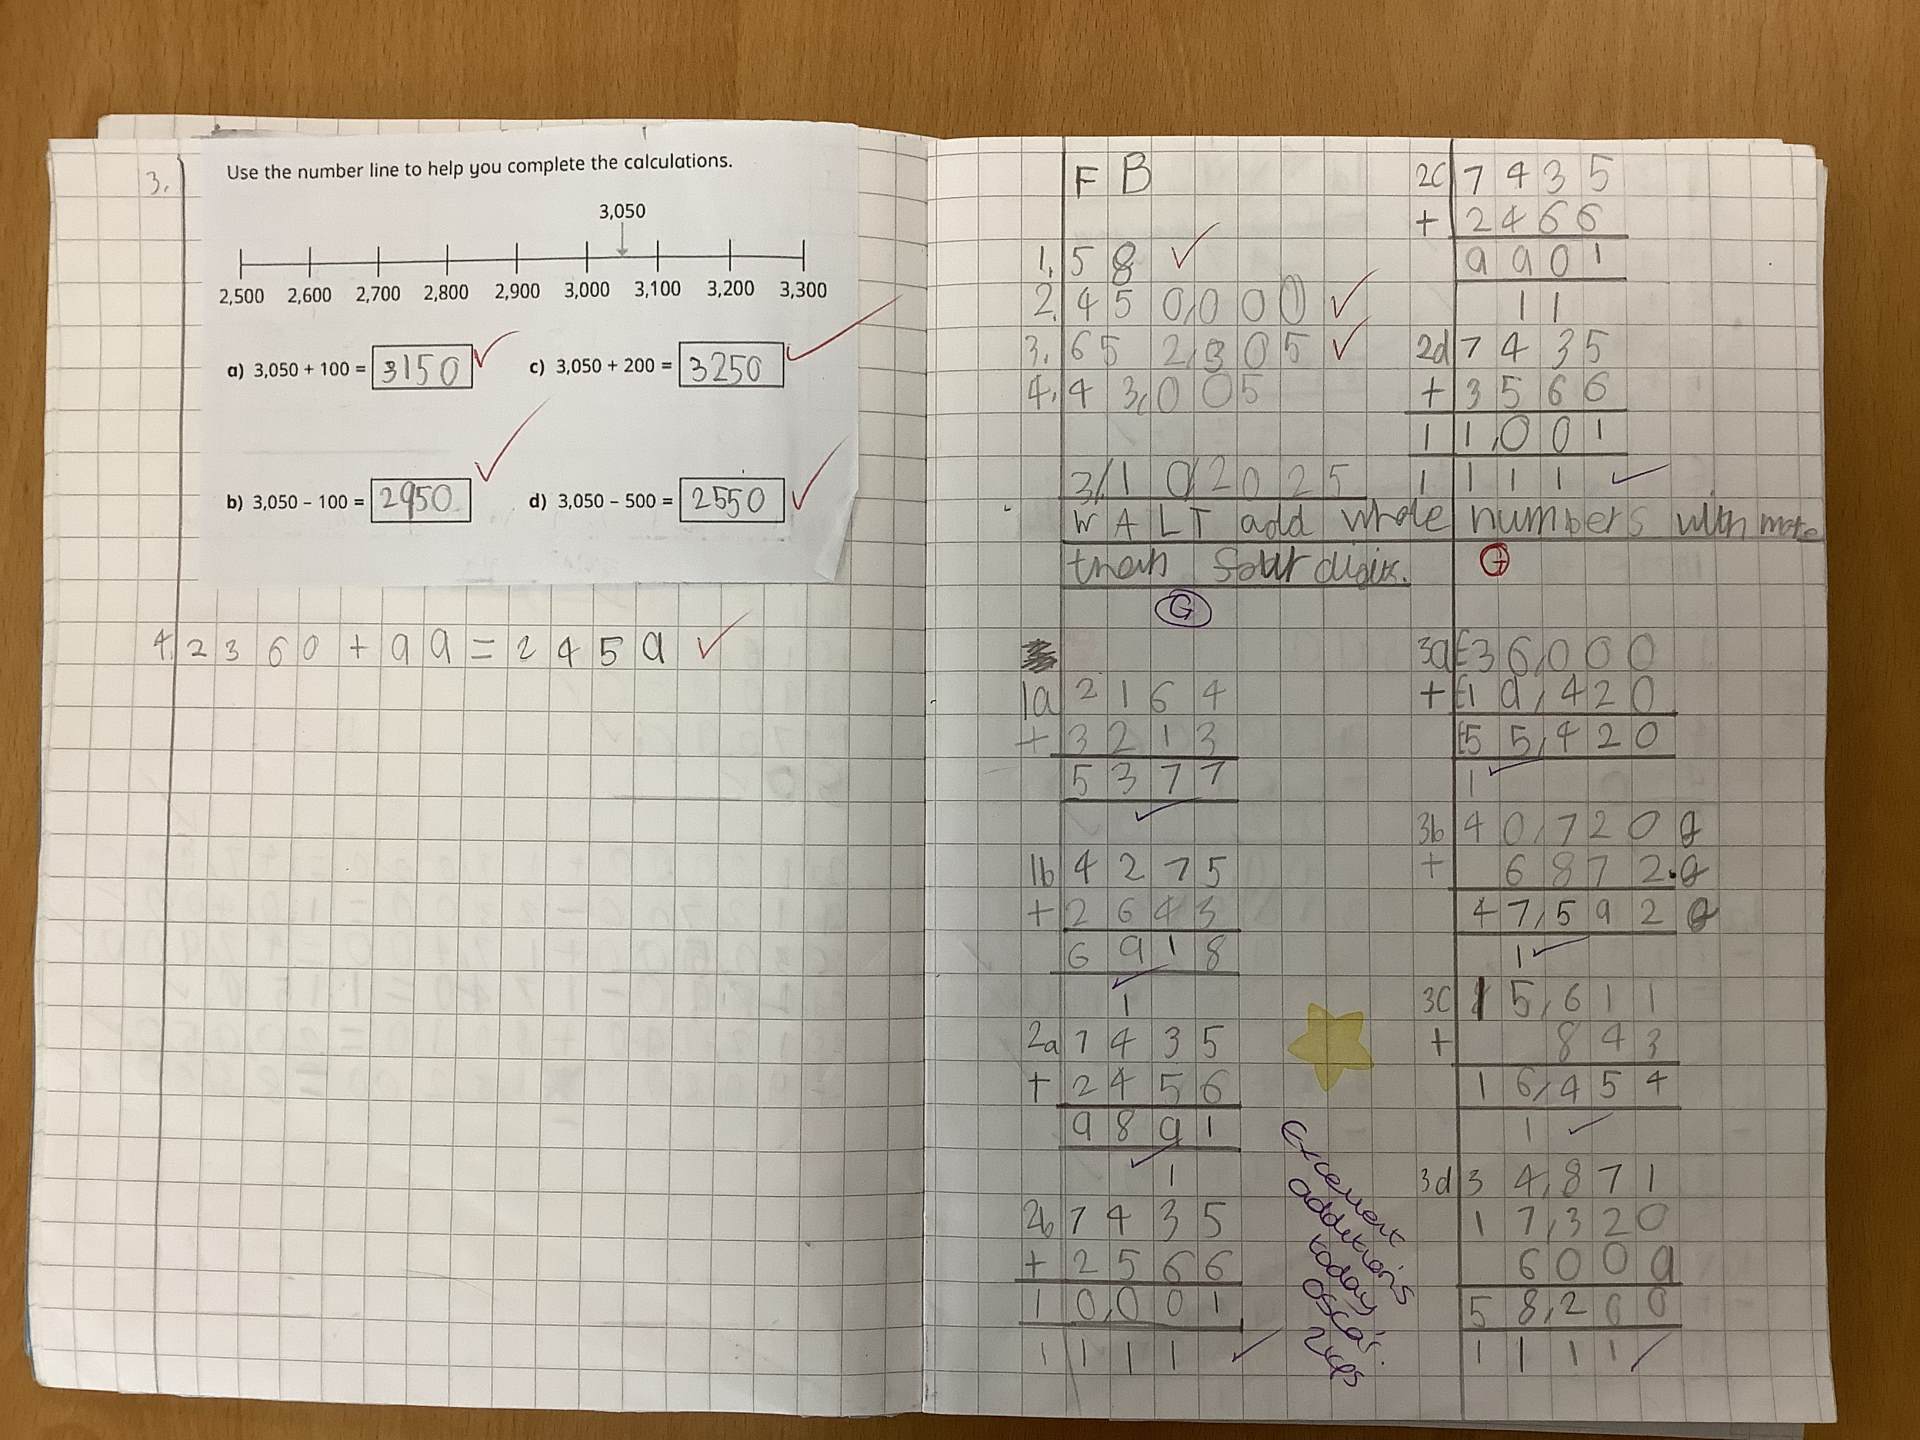 3.
Use the number line to help you complete the calculations.
3,050
2,500 2,600 2,700 2,800 2,900 3,000 3,100 3,200 3,300
a) 3,050 + 100 = 3150
c) 3,050 + 200 = 3250
b) 3,050 – 100 = 2950
d) 3,050 – 500 = 2550
4. 2360 + 99 = 2459
F B
1. 58
2. 450,000
3. 652,305
4. 43,005
2c 7435
+ 2466
9901
11
2d 7435
+ 3566
11,001
1111
3/10/2025
WALT add whole numbers with more
than four digits.
G
1a 2164
+ 3213
5377
1b 4275
+ 2643
6918
1
2a 7435
+ 2456
9891
1
2b 7435
+ 2566
10,001
1111
Excellent
additions
today
Oscar.
2HPs
3a £36,000
+ £19,420
£55,420
1
3b 40,720g
+ 6872g
47,592g
1
3c 15,611
+ 843
16,454
1
3d 34,871
17,320
6009
58,200
1111